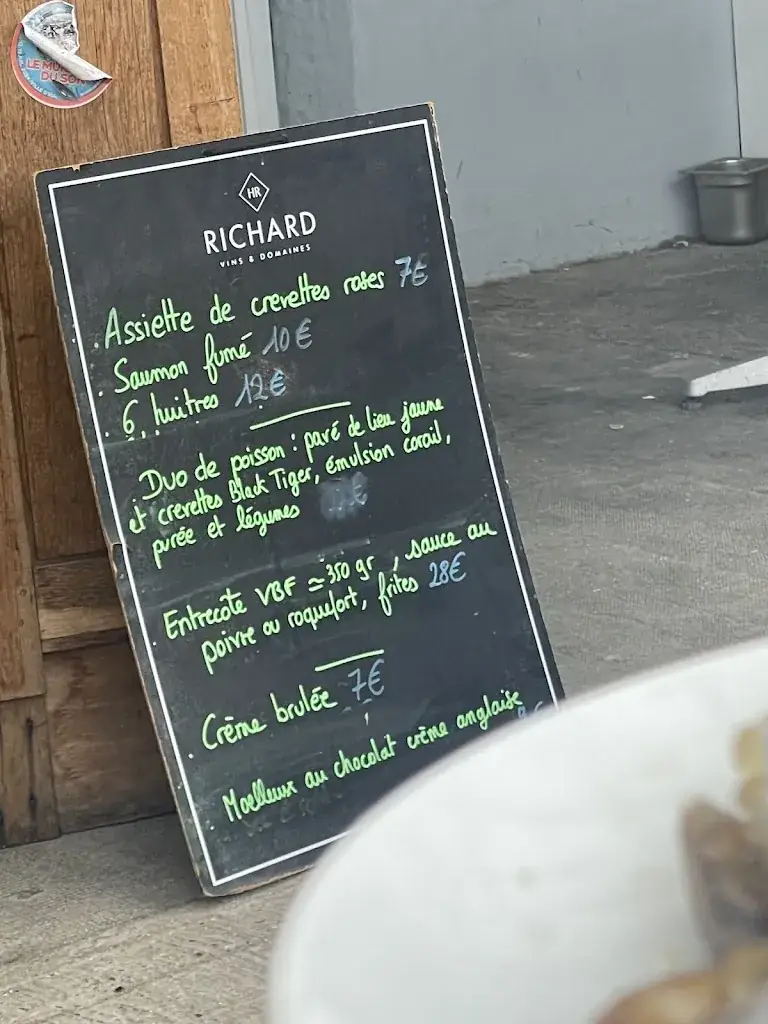 LE MU
DU SON
HR
RICHARD
VINS & DOMAINES
Assiette de crevettes roses 7€
Saumon fumé 10€
6 huitres 12€
Duo de poisson : pavé de lieu jaune
et crevettes Black Tiger, émulsion corail,
purée et légumes
Entrecote VBF ≃ 350 gr, sauce au
poivre ou roquefort, frites 28€
Crème brulée 7€
Moelleux au chocolat crème anglaise